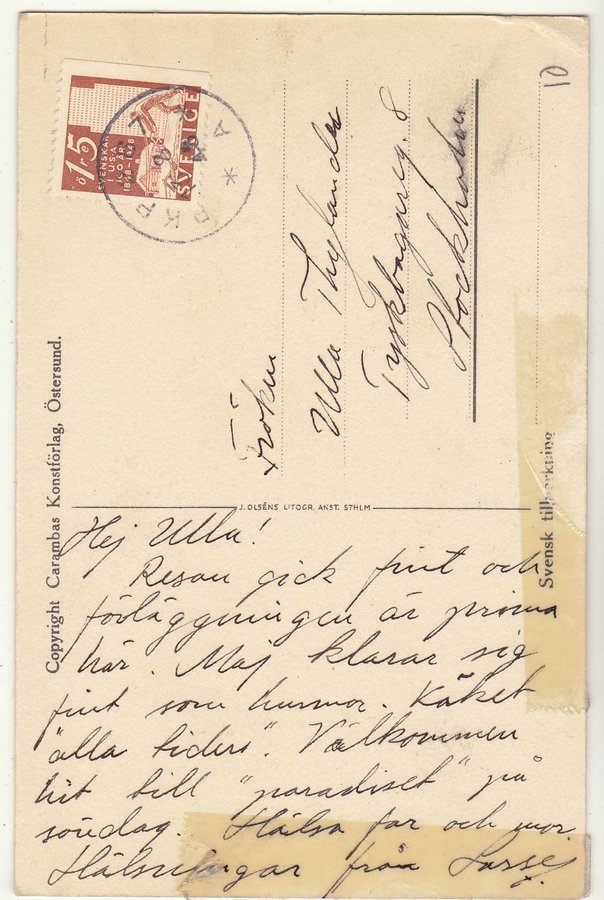 15
öre
SVENSKAR
I USA
100 ÅR
1848-1948
SVERIGE
PKP
10
Fröken
Ulla Thylander
Tyskbagareg. 8
Stockholm
Copyright Carambas Konstförlag, Östersund.
J. OLSÉNS LITOGR. ANST. STHLM
Svensk tillverkning
Hej Ulla!
Resan gick fint och
förläggningen är prima
här. Maj klarar sig
fint som husmor. Käket
"alla tiders". Välkommen
hit till "paradiset" på
söndag. Hälsa far och mor.
Hälsningar från Lasse